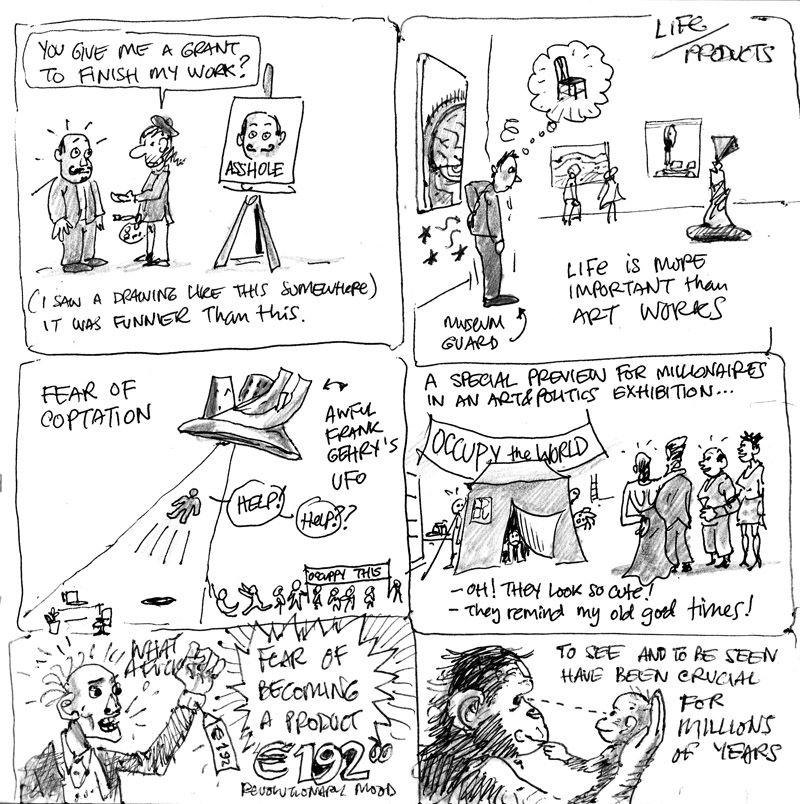 YOU GIVE ME A GRANT
TO FINISH MY WORK?
ASSHOLE
(I SAW A DRAWING LIKE THIS SOMEWHERE)
IT WAS FUNNIER Than this.
LIFE
PRODUCTS
MUSEUM
GUARD
LIFE IS MORE
IMPORTANT than
ART WORKS
FEAR OF
COPTATION
AWFUL
FRANK
GEHRY'S
UFO
HELP!
HELP??
OCCUPY THIS
A SPECIAL PREVIEW FOR MILLIONAIRES
IN AN ART&POLITICS EXHIBITION...
OCCUPY the WORLD
- OH! THEY LOOK SO CUTE!
- They remind my old god times!
WHAT
A FUCK
€192
FEAR OF
BECOMING
A PRODUCT
€192.00
REVOLUTIONARY MOOD
TO SEE AND TO BE SEEN
HAVE BEEN CRUCIAL
FOR
MILLIONS
OF YEARS